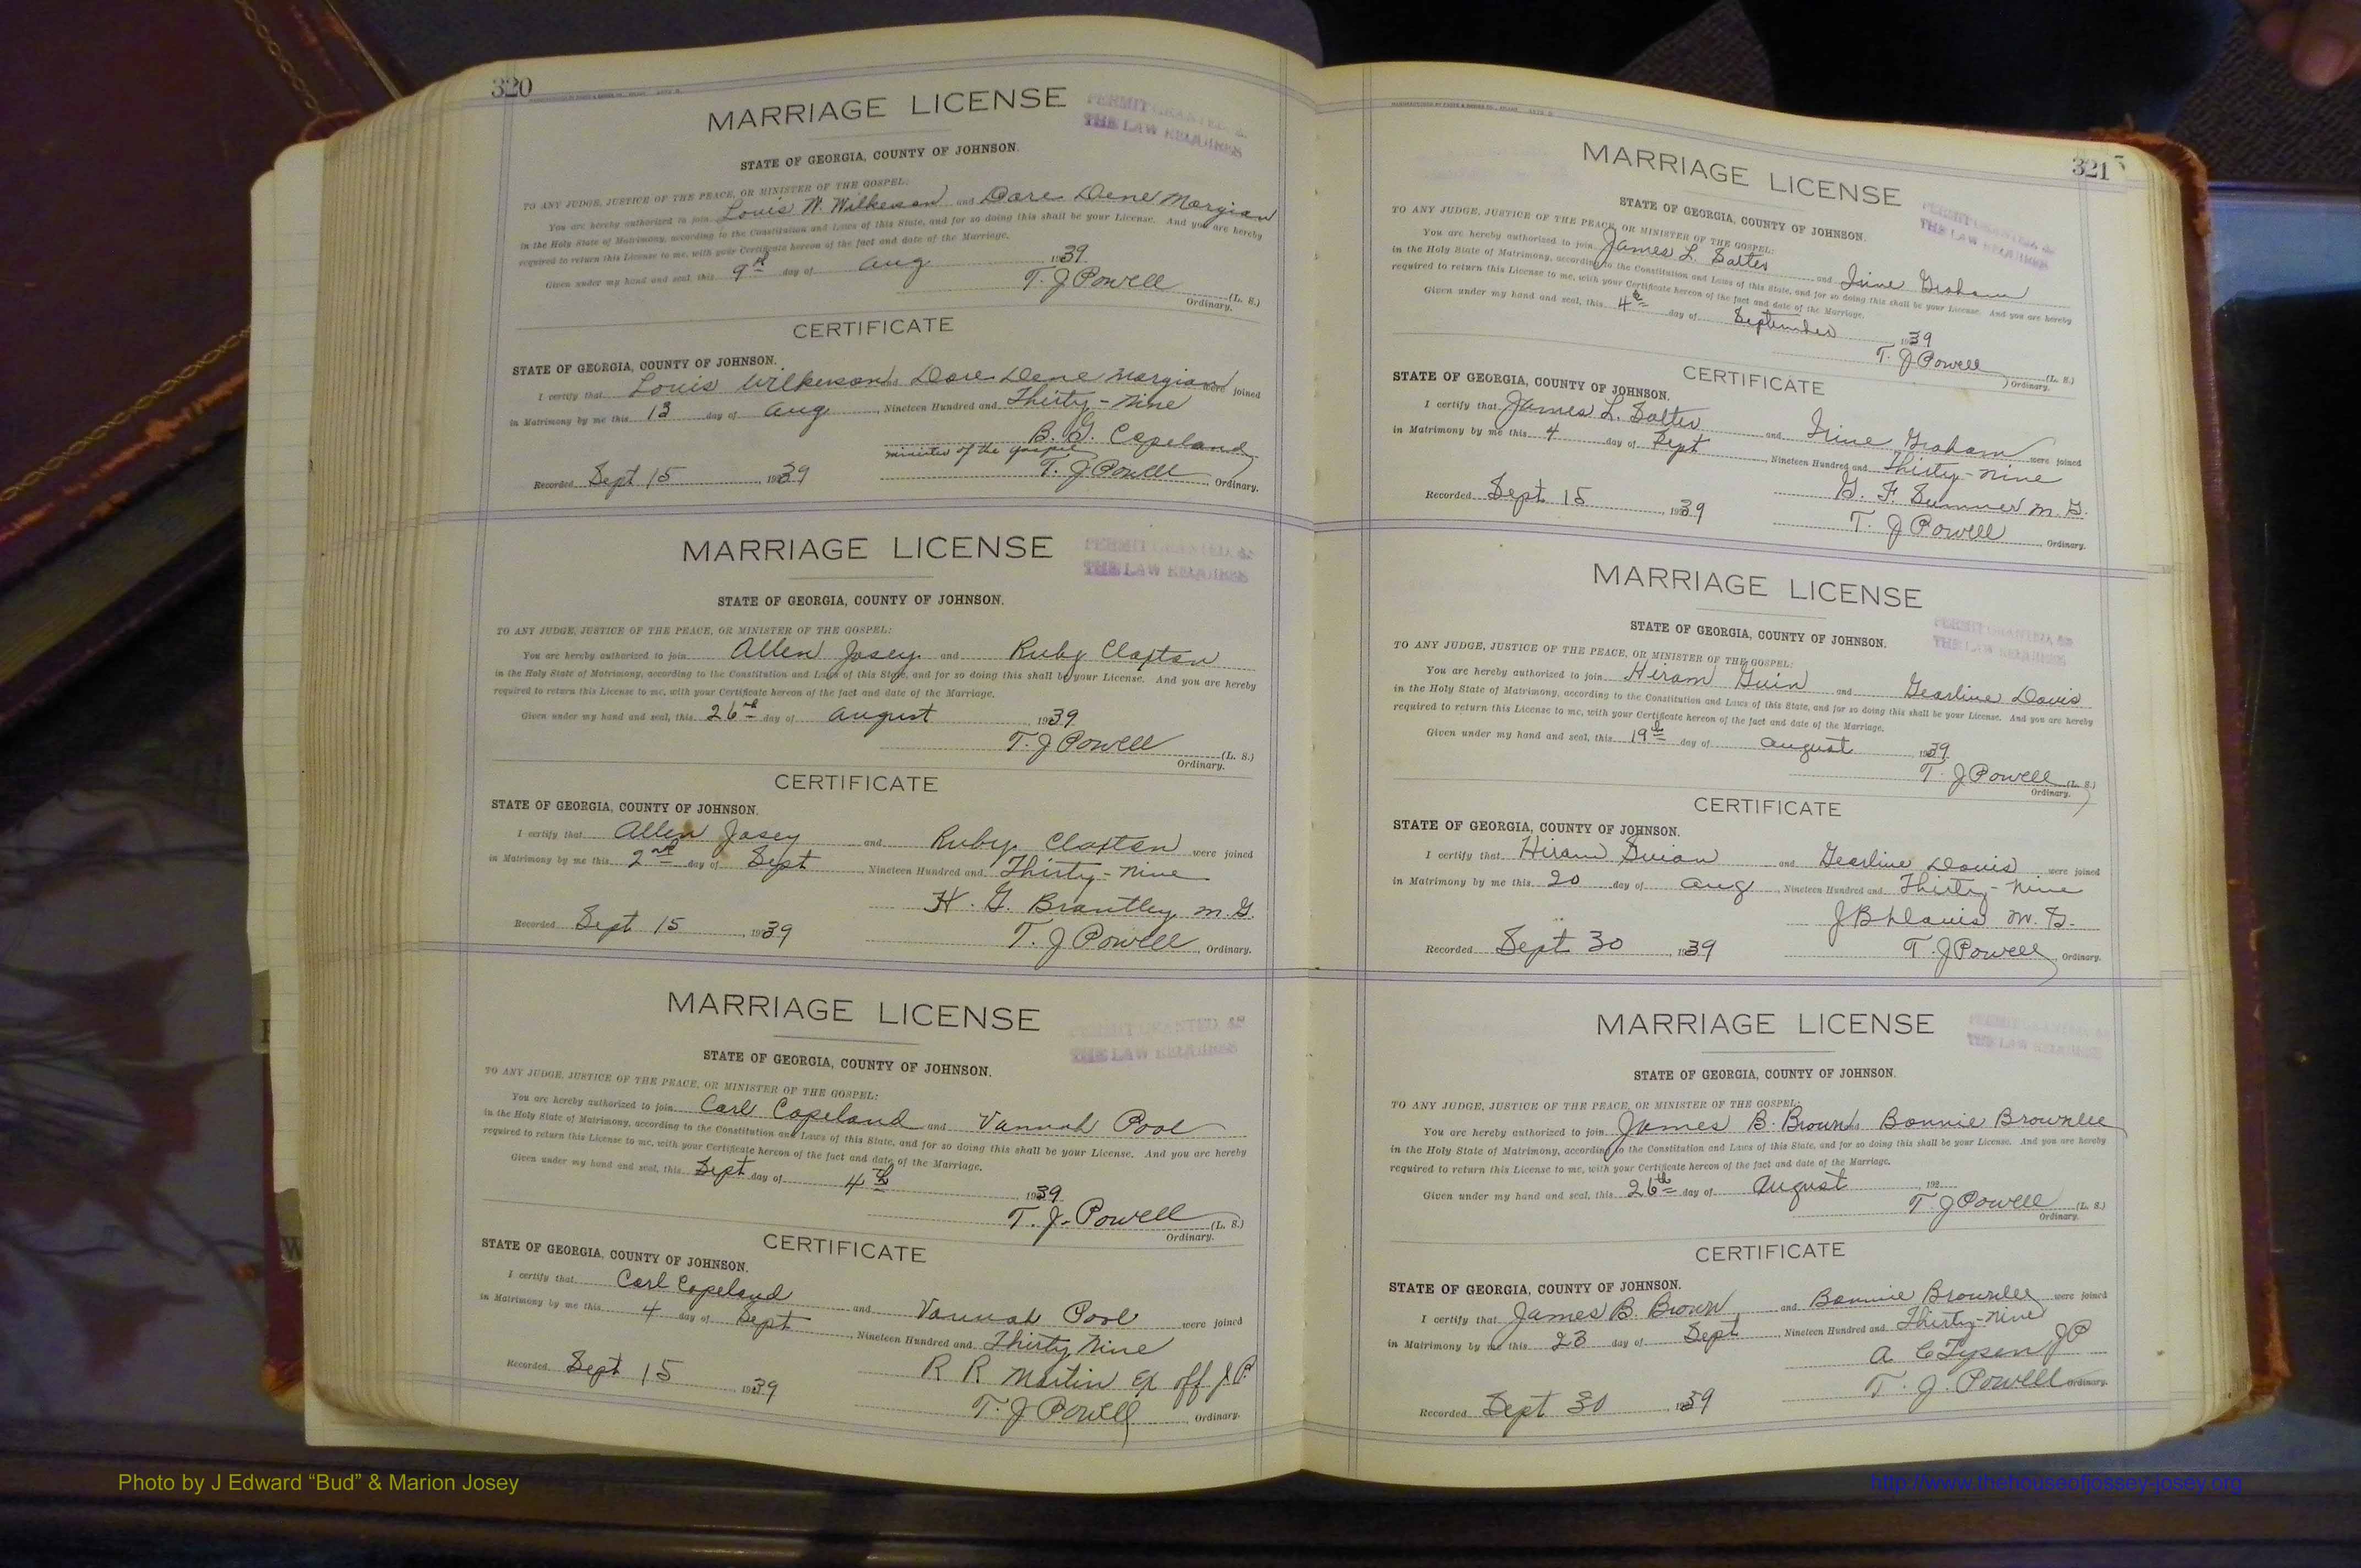 320
MARRIAGE LICENSE
PERMIT GRANTED AS
THE LAW REQUIRES
STATE OF GEORGIA, COUNTY OF JOHNSON.
TO ANY JUDGE, JUSTICE OF THE PEACE, OR MINISTER OF THE GOSPEL:
You are hereby authorized to join Louis W. Wilkerson and Dare Dene
in the Holy State of Matrimony, according to the Constitution and Laws of this State, and for so doing this shall be your License. And you are hereby
required to return this License to me, with your Certificate hereon of the fact and date of the Marriage.
Given under my hand and seal, this 9th day of Aug 1939
T. J Powell (L. S.)
Ordinary.
CERTIFICATE
STATE OF GEORGIA, COUNTY OF JOHNSON.
I certify that Louis Wilkerson and Dare Dene were joined
in Matrimony by me this 13 day of Aug, Nineteen Hundred and Thirty-Nine
B. G. Copeland
minister of the gospel
Recorded Sept 15, 1939 T. J Powell, Ordinary.
MARRIAGE LICENSE
PERMIT GRANTED AS
THE LAW REQUIRES
STATE OF GEORGIA, COUNTY OF JOHNSON.
TO ANY JUDGE, JUSTICE OF THE PEACE, OR MINISTER OF THE GOSPEL:
You are hereby authorized to join Allen Josey and Ruby Claxton
in the Holy State of Matrimony, according to the Constitution and Laws of this State, and for so doing this shall be your License. And you are hereby
required to return this License to me, with your Certificate hereon of the fact and date of the Marriage.
Given under my hand and seal, this 26th day of August, 1939
T. J Powell (L. S.)
Ordinary.
CERTIFICATE
STATE OF GEORGIA, COUNTY OF JOHNSON.
I certify that Allen Josey and Ruby Claxton were joined
in Matrimony by me this 2nd day of Sept, Nineteen Hundred and Thirty-Nine
H. G. Brantley M.G.
Recorded Sept 15, 1939 T. J Powell, Ordinary.
MARRIAGE LICENSE
PERMIT GRANTED AS
THE LAW REQUIRES
STATE OF GEORGIA, COUNTY OF JOHNSON.
TO ANY JUDGE, JUSTICE OF THE PEACE, OR MINISTER OF THE GOSPEL:
You are hereby authorized to join Carl Copeland and Vannah Pool
in the Holy State of Matrimony, according to the Constitution and Laws of this State, and for so doing this shall be your License. And you are hereby
required to return this License to me, with your Certificate hereon of the fact and date of the Marriage.
Given under my hand and seal, this Sept day of 4th, 1939
T. J. Powell (L. S.)
Ordinary.
CERTIFICATE
STATE OF GEORGIA, COUNTY OF JOHNSON.
I certify that Carl Copeland and Vannah Pool were joined
in Matrimony by me this 4 day of Sept, Nineteen Hundred and Thirty Nine
R R Martin Ex off J.P.
Recorded Sept 15, 1939 T. J Powell, Ordinary.
321
MARRIAGE LICENSE
PERMIT GRANTED AS
THE LAW REQUIRES
STATE OF GEORGIA, COUNTY OF JOHNSON.
TO ANY JUDGE, JUSTICE OF THE PEACE, OR MINISTER OF THE GOSPEL:
You are hereby authorized to join James L. Salter and Irine Graham
in the Holy State of Matrimony, according to the Constitution and Laws of this State, and for so doing this shall be your License. And you are hereby
required to return this License to me, with your Certificate hereon of the fact and date of the Marriage.
Given under my hand and seal, this 4th day of September, 1939
T. J Powell (L. S.)
Ordinary.
CERTIFICATE
STATE OF GEORGIA, COUNTY OF JOHNSON.
I certify that James L. Salter and Irine Graham were joined
in Matrimony by me this 4 day of Sept, Nineteen Hundred and Thirty-Nine
G. F. Sumner M.G.
Recorded Sept 15, 1939 T. J Powell, Ordinary.
MARRIAGE LICENSE
PERMIT GRANTED AS
THE LAW REQUIRES
STATE OF GEORGIA, COUNTY OF JOHNSON.
TO ANY JUDGE, JUSTICE OF THE PEACE, OR MINISTER OF THE GOSPEL:
You are hereby authorized to join Hiram Guin and Gearline Davis
in the Holy State of Matrimony, according to the Constitution and Laws of this State, and for so doing this shall be your License. And you are hereby
required to return this License to me, with your Certificate hereon of the fact and date of the Marriage.
Given under my hand and seal, this 19th day of August, 1939
T. J Powell (L. S.)
Ordinary.
CERTIFICATE
STATE OF GEORGIA, COUNTY OF JOHNSON.
I certify that Hiram and Gearline Davis were joined
in Matrimony by me this 20 day of Aug, Nineteen Hundred and Thirty-Nine
M.G.
Recorded Sept 30, 1939 T. J Powell, Ordinary.
MARRIAGE LICENSE
PERMIT GRANTED AS
THE LAW REQUIRES
STATE OF GEORGIA, COUNTY OF JOHNSON.
TO ANY JUDGE, JUSTICE OF THE PEACE, OR MINISTER OF THE GOSPEL:
You are hereby authorized to join James B. Brown and Bonnie Brownlee
in the Holy State of Matrimony, according to the Constitution and Laws of this State, and for so doing this shall be your License. And you are hereby
required to return this License to me, with your Certificate hereon of the fact and date of the Marriage.
Given under my hand and seal, this 26th day of August, 192
T J Powell (L. S.)
Ordinary.
CERTIFICATE
STATE OF GEORGIA, COUNTY OF JOHNSON.
I certify that James B. Brown and Bonnie Brownlee were joined
in Matrimony by me this 23 day of Sept, Nineteen Hundred and Thirty-Nine
A C Tysen JP
T. J. Powell Ordinary.
Recorded Sept 30, 1939
Photo by J Edward “Bud” & Marion Josey
http://www.thehouseofjossey-josey.org